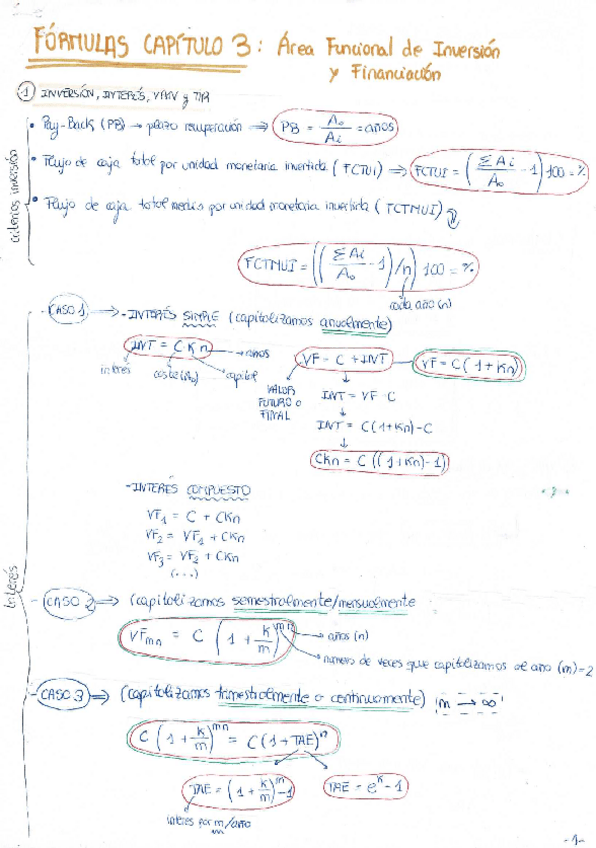 FÓRMULAS CAPÍTULO 3: Área Funcional de Inversión
y Financiación
1 INVERSIÓN, INTERÉS, VAN y TIR
criterios inversión
• Pay-Back (PB) → plazo recuperación ⇒ PB = A₀/Ai = años
• Flujo de caja total por unidad monetaria invertida (FCTUI) ⇒ FCTUI = (ΣAi/A₀ - 1) 100 = %
• Flujo de caja total medio por unidad monetaria invertida (FCTMUI) ⇓
FCTMUI = ((ΣAi/A₀ - 1)/n) 100 = %
cada año (n)
Interés
- CASO 1 ⇒ - INTERÉS SIMPLE (capitalizamos anualmente)
INT = C·K·n → años
interés coste (%) capital
VF = C + INT → VF = C (1 + Kn)
VALOR
FUTURO o
FINAL
INT = VF - C
INT = C(1+Kn) - C
CKn = C ((1+Kn) - 1)
- INTERÉS COMPUESTO
VF₁ = C + CKn
VF₂ = VF₁ + CKn
VF₃ = VF₂ + CKn
(...)
- CASO 2 ⇒ (capitalizamos semestralmente/mensualmente
VFmn = C (1 + k/m)^mn → años (n)
número de veces que capitalizamos al año (m)=2
- CASO 3 ⇒ (capitalizamos trimestralmente o continuamente) m → ∞
C (1 + k/m)^mn = C (1 + TAE)^n
TAE = (1 + k/m)^m - 1 TAE = e^k - 1
interés por m/año
-1-